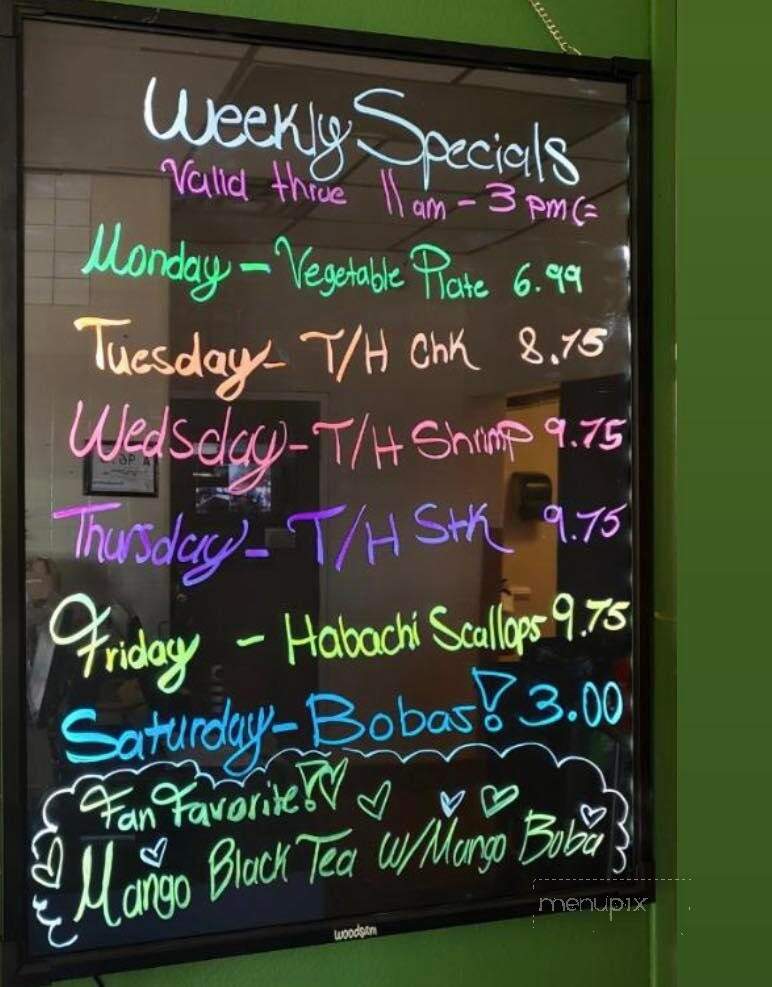 Weekly Specials
Valid thrue 11am - 3pm (=
Monday - Vegetable Plate 6.99
Tuesday - T/H Chk 8.75
Wedsday - T/H Shrimp 9.75
Thursday - T/H Stk 9.75
Friday - Habachi Scallops 9.75
Saturday - Bobas! 3.00
Fan Favorite!
Mango Black Tea w/Mango Boba
menupix
woodsam